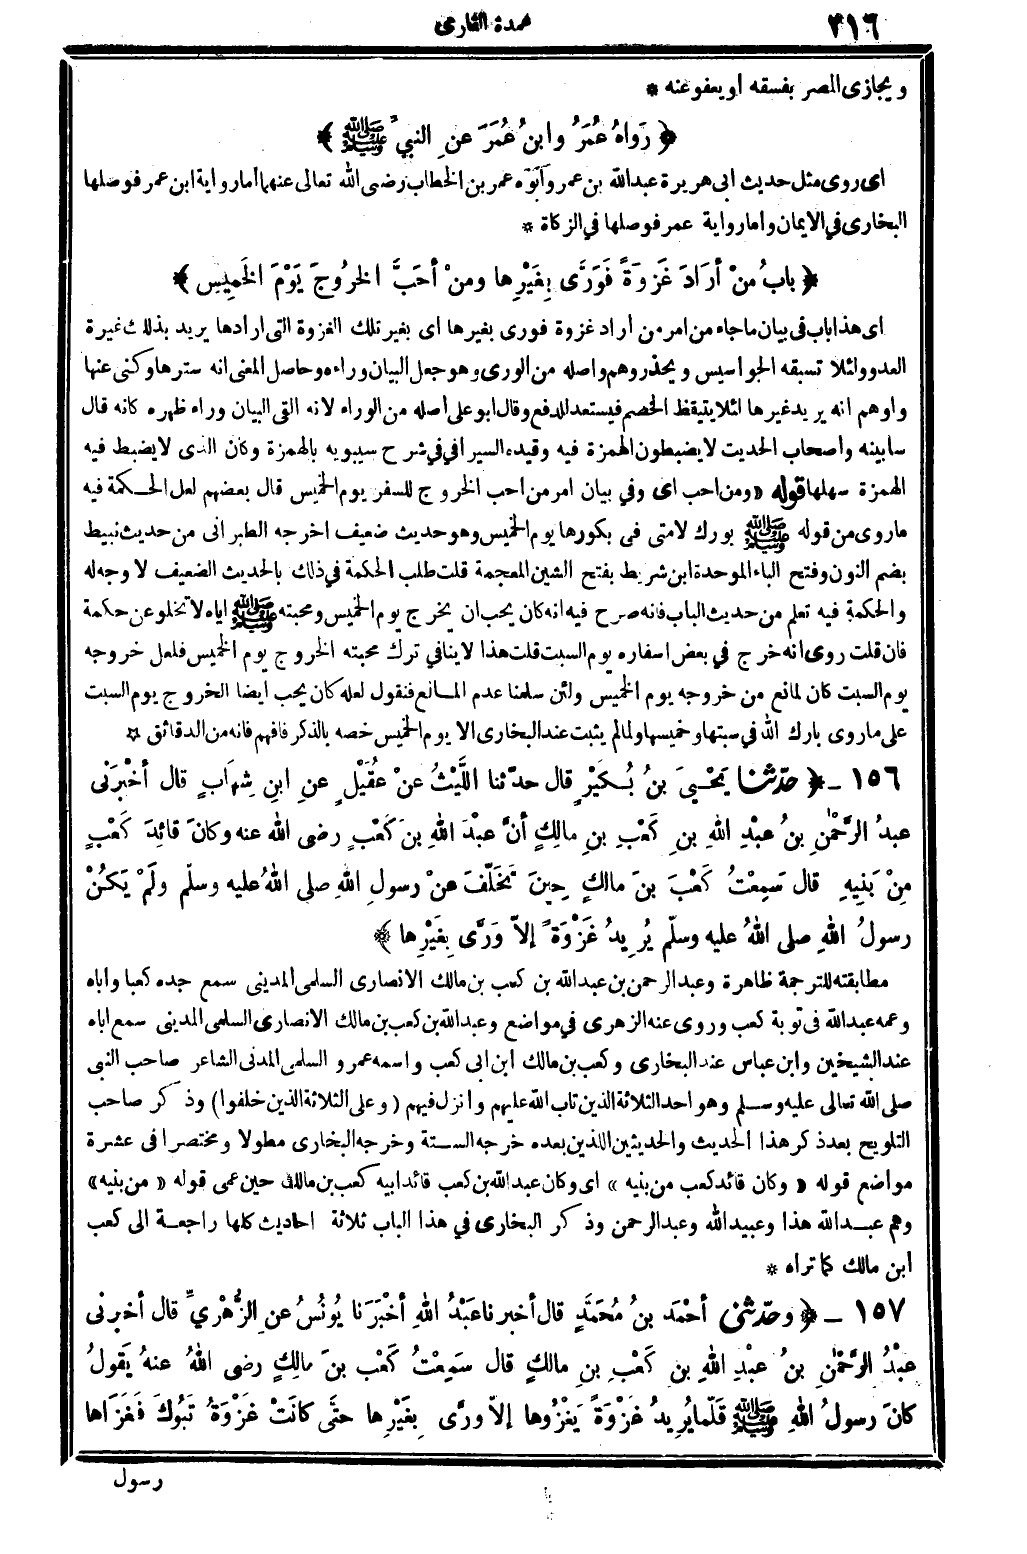 ٢١٦
عمدة القارى
ويجازى المصر بفسقه او يعفو عنه *
﴿ رَوَاهُ عُمَرُ وابنُ عُمَرَ عنِ النبيِّ ﷺ ﴾
اى روى مثل حديث ابى هريرة عبد الله بن عمر وأبوه عمر بن الخطاب رضى الله تعالى عنهما أما رواية ابن عمر فوصلها
البخارى في الايمان وأما رواية عمر فوصلها في الزكاة *
﴿ بابُ منْ أرَادَ غَزْوَةً فَوَرَّى بِغَيْرِها ومنْ أحَبَّ الخرُوجَ يَوْمَ الخَمِيسِ ﴾
اى هذا باب فى بيان ما جاء من امر من أراد غزوة فورى بغيرها اى بغير تلك الغزوة التى ارادها يريد بذلك غيرة
العدو ولئلا تسبقه الجواسيس ويحذروهم واصله من الورى وهو جعل البيان وراءه وحاصل المعنى انه سترها وكنى عنها
واوهم انه يريد غيرها لئلا يتيقظ الخصم فيستعد للدفع وقال ابو على أصله من الوراء لانه القى البيان وراء ظهره كانه قال
سأبينه وأصحاب الحديث لا يضبطون الهمزة فيه وقيده السيرافى في شرح سيبويه بالهمزة وكان الذى لا يضبط فيه
الهمزة سهلها قوله «ومن احب اى وفي بيان امر من احب الخروج للسفر يوم الخميس قال بعضهم لعل الحكمة فيه
ماروى من قوله ﷺ بورك لامتى فى بكورها يوم الخميس وهو حديث ضعيف اخرجه الطبرانى من حديث نبيط
بضم النون وفتح الباء الموحدة ابن شريط بفتح الشين المعجمة قلت طلب الحكمة في ذلك بالحديث الضعيف لا وجه له
والحكمة فيه تعلم من حديث الباب فانه صرح فيه انه كان يحب ان يخرج يوم الخميس ومحبته ﷺ اياه لا تخلو عن حكمة
فان قلت روى انه خرج في بعض اسفاره يوم السبت قلت هذا لا ينافي ترك محبته الخروج يوم الخميس فلعل خروجه
يوم السبت كان لمانع من خروجه يوم الخميس ولئن سلمنا عدم المانع فنقول لعله كان يحب ايضا الخروج يوم السبت
على ماروى بارك الله في سبتها وخميسها ولما لم يثبت عند البخارى الا يوم الخميس خصه بالذكر فافهم فانه من الدقائق *
١٥٦ ـ ﴿ حدّثنا يَحْيىَ بنُ بُكَيْرٍ قال حدّثنا اللَّيْثُ عنْ عُقَيْلٍ عنِ ابنِ شِهَابٍ قال أخْبرَنى
عبدُ الرَّحْمٰنِ بنُ عبْدِ اللهِ بنِ كَعْبِ بنِ مالِكٍ أنَّ عبْدَ اللهِ بنَ كَعْبٍ رضى الله عنه وكانَ قائِدَ كَعْبٍ
مِنْ بَنِيهِ قال سَمِعْتُ كَعْبَ بنَ مالكٍ حِينَ تَخَلَّفَ عنْ رسولِ اللهِ صلى اللهُ عليه وسلّم ولَمْ يَكُنْ
رسولُ اللهِ صلى اللهُ عليه وسلّم يُرِيدُ غَزْوَةً إلاّ وَرَّى بِغَيْرِها ﴾
مطابقته للترجمة ظاهرة وعبد الرحمن بن عبد الله بن كعب بن مالك الانصارى السلمى المدينى سمع جده كعبا واباه
وعمه عبد الله فى توبة كعب وروى عنه الزهرى في مواضع وعبد الله بن كعب بن مالك الانصارى السلمى المدينى سمع اباه
عند الشيخين وابن عباس عند البخارى وكعب بن مالك ابن ابى كعب واسمه عمرو السلمى المدنى الشاعر صاحب النبى
صلى الله تعالى عليه وسلم وهو احد الثلاثة الذين تاب الله عليهم وانزل فيهم (وعلى الثلاثة الذين خلفوا) وذكر صاحب
التلويح بعد ذكر هذا الحديث والحديثين اللذين بعده خرجه الستة وخرجه البخارى مطولا ومختصرا فى عشرة
مواضع قوله « وكان قائد كعب من بنيه » اى وكان عبد الله بن كعب قائد ابيه كعب بن مالك حين عمى قوله « من بنيه»
وهم عبد الله هذا وعبيد الله وعبد الرحمن وذكر البخارى في هذا الباب ثلاثة احاديث كلها راجعة الى كعب
ابن مالك كما تراه *
١٥٧ ـ ﴿ وحدّثنى أحْمَد بنُ مُحَمَّدٍ قال أخبرنا عَبْدُ اللهِ أخْبَرَنا يُونُسُ عنِ الزُّهْرِيِّ قال أخبرنى
عبْدُ الرَّحْمٰنِ بنُ عبْدِ اللهِ بنِ كَعْبِ بنِ مالكٍ قال سَمِعْتُ كَعْبَ بنَ مالِكٍ رضى اللهُ عنهُ يَقُولُ
كانَ رسولُ اللهِ ﷺ قَلّما يُرِيدُ غزْوَةً يَغْزُوها إلاّ ورَّى بِغَيْرِها حتَّى كانَتْ غزْوَةُ تَبُوكَ فَغَزَاها
رسول